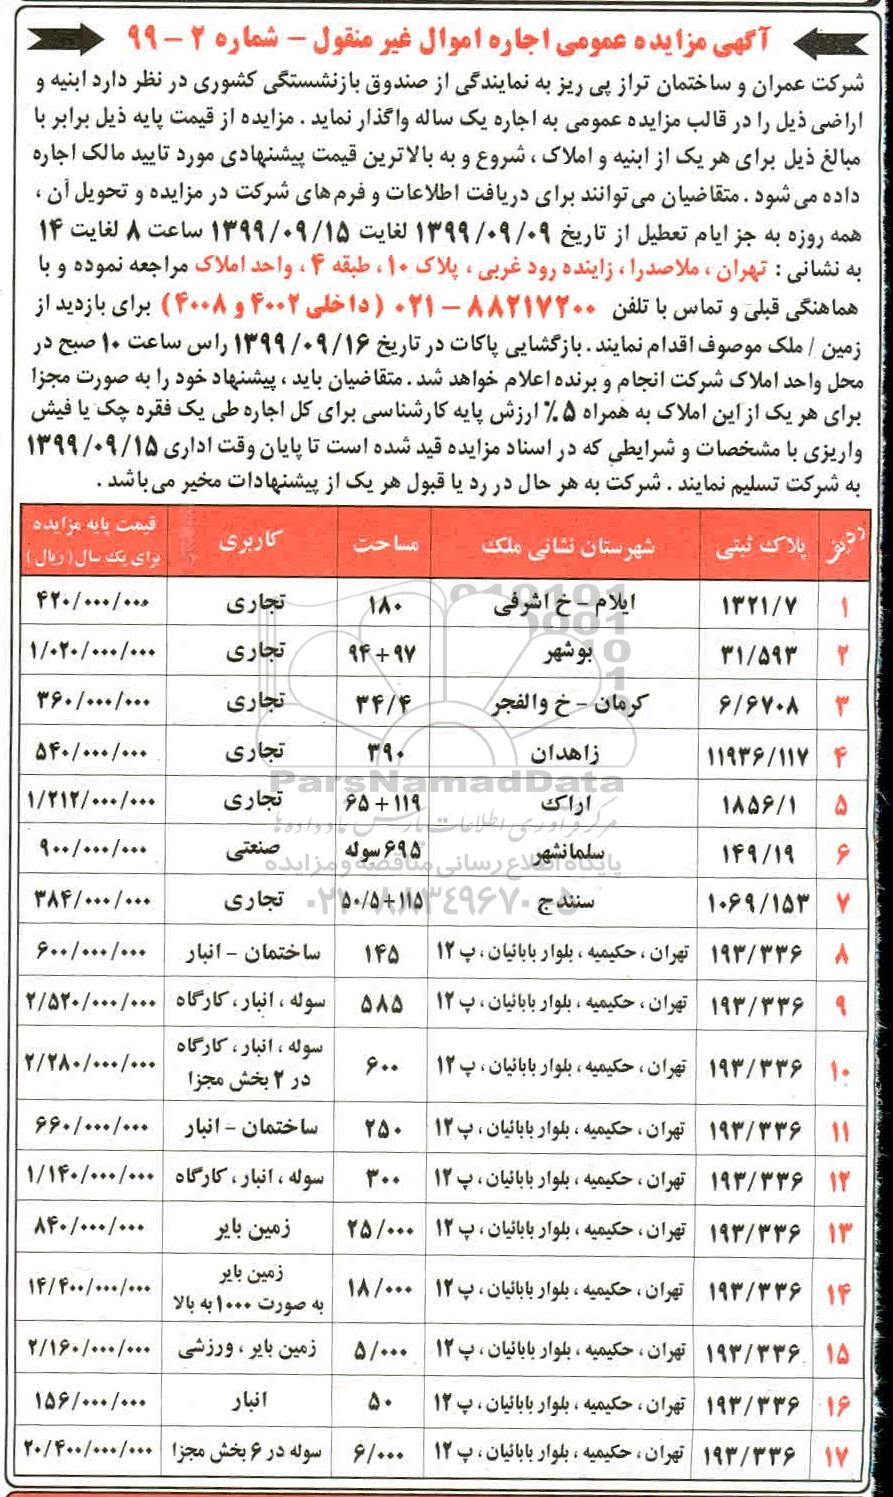 آگهی مزایده عمومی اجاره اموال غیر منقول - شماره ۲ - ۹۹
شرکت عمران و ساختمان تراز پی ریز به نمایندگی از صندوق بازنشستگی کشوری در نظر دارد ابنیه و
اراضی ذیل را در قالب مزایده عمومی به اجاره یک ساله واگذار نماید . مزایده از قیمت پایه ذیل برابر با
مبالغ ذیل برای هر یک از ابنیه و املاک ، شروع و به بالاترین قیمت پیشنهادی مورد تایید مالک اجاره
داده می شود . متقاضیان می توانند برای دریافت اطلاعات و فرم های شرکت در مزایده و تحویل آن ،
همه روزه به جز ایام تعطیل از تاریخ ۱۳۹۹/۰۹/۰۹ لغایت ۱۳۹۹/۰۹/۱۵ ساعت ۸ لغایت ۱۴
به نشانی : تهران ، ملاصدرا ، زاینده رود غربی ، پلاک ۱۰ ، طبقه ۴ ، واحد املاک مراجعه نموده و با
هماهنگی قبلی و تماس با تلفن ۸۸۲۱۷۲۰۰ - ۰۲۱ ( داخلی ۴۰۰۲ و ۴۰۰۸ ) برای بازدید از
زمین / ملک موصوف اقدام نمایند . بازگشایی پاکات در تاریخ ۱۳۹۹/۰۹/۱۶ راس ساعت ۱۰ صبح در
محل واحد املاک شرکت انجام و برنده اعلام خواهد شد . متقاضیان باید ، پیشنهاد خود را به صورت مجزا
برای هر یک از این املاک به همراه ۵٪ ارزش پایه کارشناسی برای کل اجاره طی یک فقره چک یا فیش
واریزی با مشخصات و شرایطی که در اسناد مزایده قید شده است تا پایان وقت اداری ۱۳۹۹/۰۹/۱۵
به شرکت تسلیم نمایند . شرکت به هر حال در رد یا قبول هر یک از پیشنهادات مخیر می باشد .
ردیف پلاک ثبتی شهرستان نشانی ملک مساحت کاربری قیمت پایه مزایده برای یک سال ( ریال )
۱ ۱۳۲۱/۷ ایلام - خ اشرفی ۱۸۰ تجاری ۴۲۰/۰۰۰/۰۰۰
۲ ۳۱/۵۹۳ بوشهر ۹۷+۹۴ تجاری ۱/۰۲۰/۰۰۰/۰۰۰
۳ ۶/۶۷۰۸ کرمان - خ والفجر ۳۴/۴ تجاری ۳۶۰/۰۰۰/۰۰۰
۴ ۱۱۹۳۶/۱۱۷ زاهدان ۳۹۰ تجاری ۵۴۰/۰۰۰/۰۰۰
۵ ۱۸۵۶/۱ اراک ۱۱۹+۶۵ تجاری ۱/۲۱۲/۰۰۰/۰۰۰
۶ ۱۴۹/۱۹ سلمانشهر ۶۹۵ سوله صنعتی ۹۰۰/۰۰۰/۰۰۰
۷ ۱۰۶۹/۱۵۳ سنندج ۱۱۵+۵۰/۵ تجاری ۳۸۴/۰۰۰/۰۰۰
۸ ۱۹۳/۳۳۶ تهران ، حکیمیه ، بلوار بابائیان ، پ ۱۲ ۱۴۵ ساختمان - انبار ۶۰۰/۰۰۰/۰۰۰
۹ ۱۹۳/۳۳۶ تهران ، حکیمیه ، بلوار بابائیان ، پ ۱۲ ۵۸۵ سوله ، انبار ، کارگاه ۲/۵۲۰/۰۰۰/۰۰۰
۱۰ ۱۹۳/۳۳۶ تهران ، حکیمیه ، بلوار بابائیان ، پ ۱۲ ۶۰۰ سوله ، انبار ، کارگاه در ۲ بخش مجزا ۲/۲۸۰/۰۰۰/۰۰۰
۱۱ ۱۹۳/۳۳۶ تهران ، حکیمیه ، بلوار بابائیان ، پ ۱۲ ۲۵۰ ساختمان - انبار ۶۶۰/۰۰۰/۰۰۰
۱۲ ۱۹۳/۳۳۶ تهران ، حکیمیه ، بلوار بابائیان ، پ ۱۲ ۳۰۰ سوله ، انبار ، کارگاه ۱/۱۴۰/۰۰۰/۰۰۰
۱۳ ۱۹۳/۳۳۶ تهران ، حکیمیه ، بلوار بابائیان ، پ ۱۲ ۲۵/۰۰۰ زمین بایر ۸۴۰/۰۰۰/۰۰۰
۱۴ ۱۹۳/۳۳۶ تهران ، حکیمیه ، بلوار بابائیان ، پ ۱۲ ۱۸/۰۰۰ زمین بایر به صورت ۱۰۰۰ به بالا ۱۴/۴۰۰/۰۰۰/۰۰۰
۱۵ ۱۹۳/۳۳۶ تهران ، حکیمیه ، بلوار بابائیان ، پ ۱۲ ۵/۰۰۰ زمین بایر ، ورزشی ۲/۱۶۰/۰۰۰/۰۰۰
۱۶ ۱۹۳/۳۳۶ تهران ، حکیمیه ، بلوار بابائیان ، پ ۱۲ ۵۰ انبار ۱۵۶/۰۰۰/۰۰۰
۱۷ ۱۹۳/۳۳۶ تهران ، حکیمیه ، بلوار بابائیان ، پ ۱۲ ۶/۰۰۰ سوله در ۶ بخش مجزا ۲۰/۴۰۰/۰۰۰/۰۰۰
ParsNamadData
مرکز فرآوری اطلاعات پارس نماد داده ها
پایگاه اطلاع رسانی مناقصه و مزایده
۰۲۱-۸۸۳۴۹۶۷۰-۵